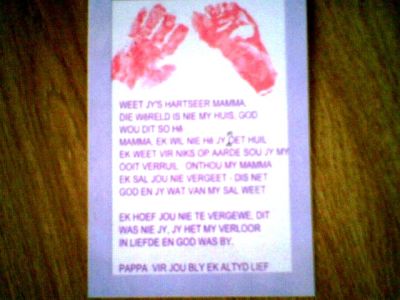 WEET JY'S HARTSEER MAMMA,
DIE WêRELD IS NIE MY HUIS, GOD
WOU DIT SO Hê
MAMMA, EK WIL NIE Hê JY OET HUIL
EK WEET VIR NIKS OP AARDE SOU JY MY
OOIT VERRUIL ONTHOU MY MAMMA
EK SAL JOU NIE VERGEET - DIS NET
GOD EN JY WAT VAN MY SAL WEET
EK HOEF JOU NIE TE VERGEWE, DIT
WAS NIE JY, JY HET MY VERLOOR
IN LIEFDE EN GOD WAS BY.
PAPPA VIR JOU BLY EK ALTYD LIEF